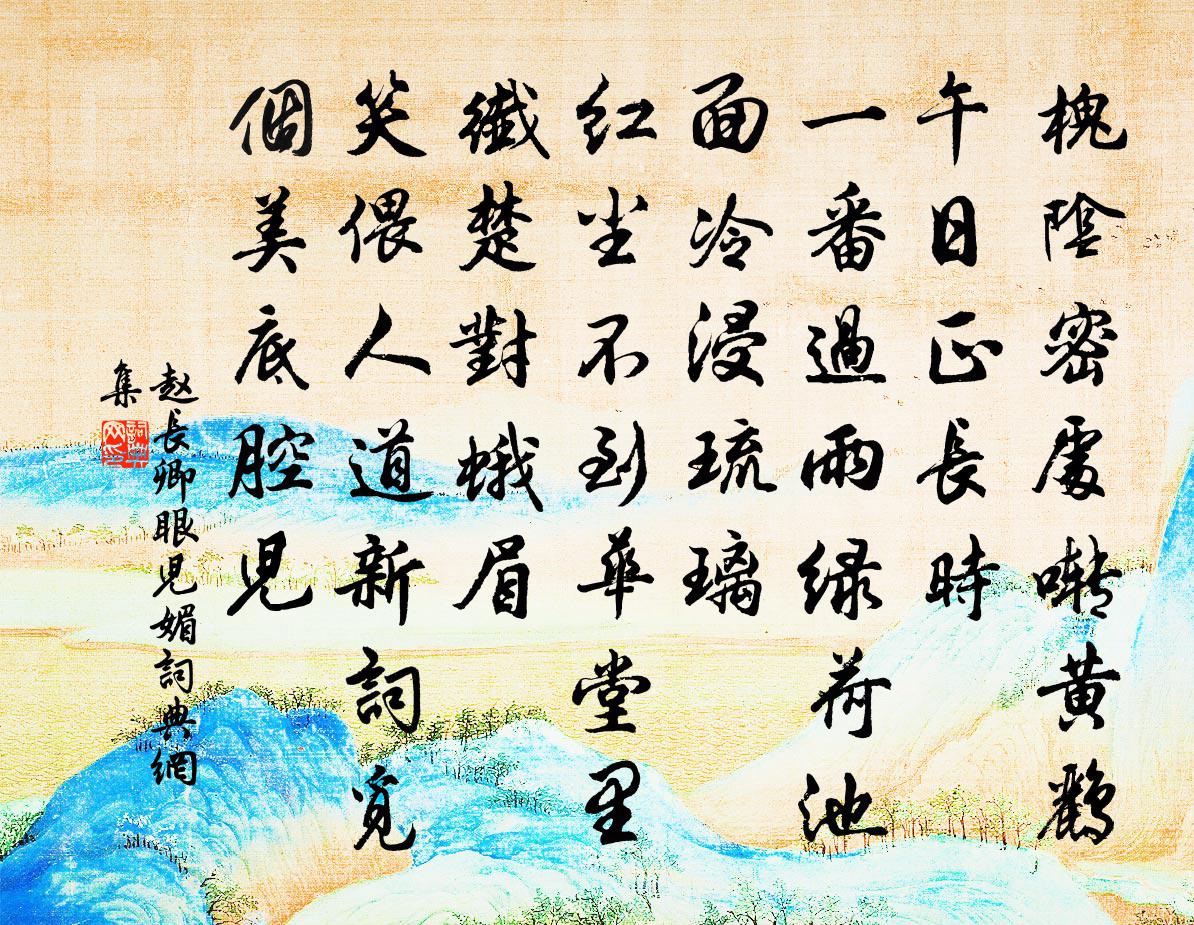 槐陰密處囀黃鸝
午日正長時
一番過雨綠荷池
面冷浸琉璃
红尘不到華堂里
纖楚對蛾眉
笑偎人道新詞覓
個美底腔兒
赵長卿眼兒媚詞典網
集